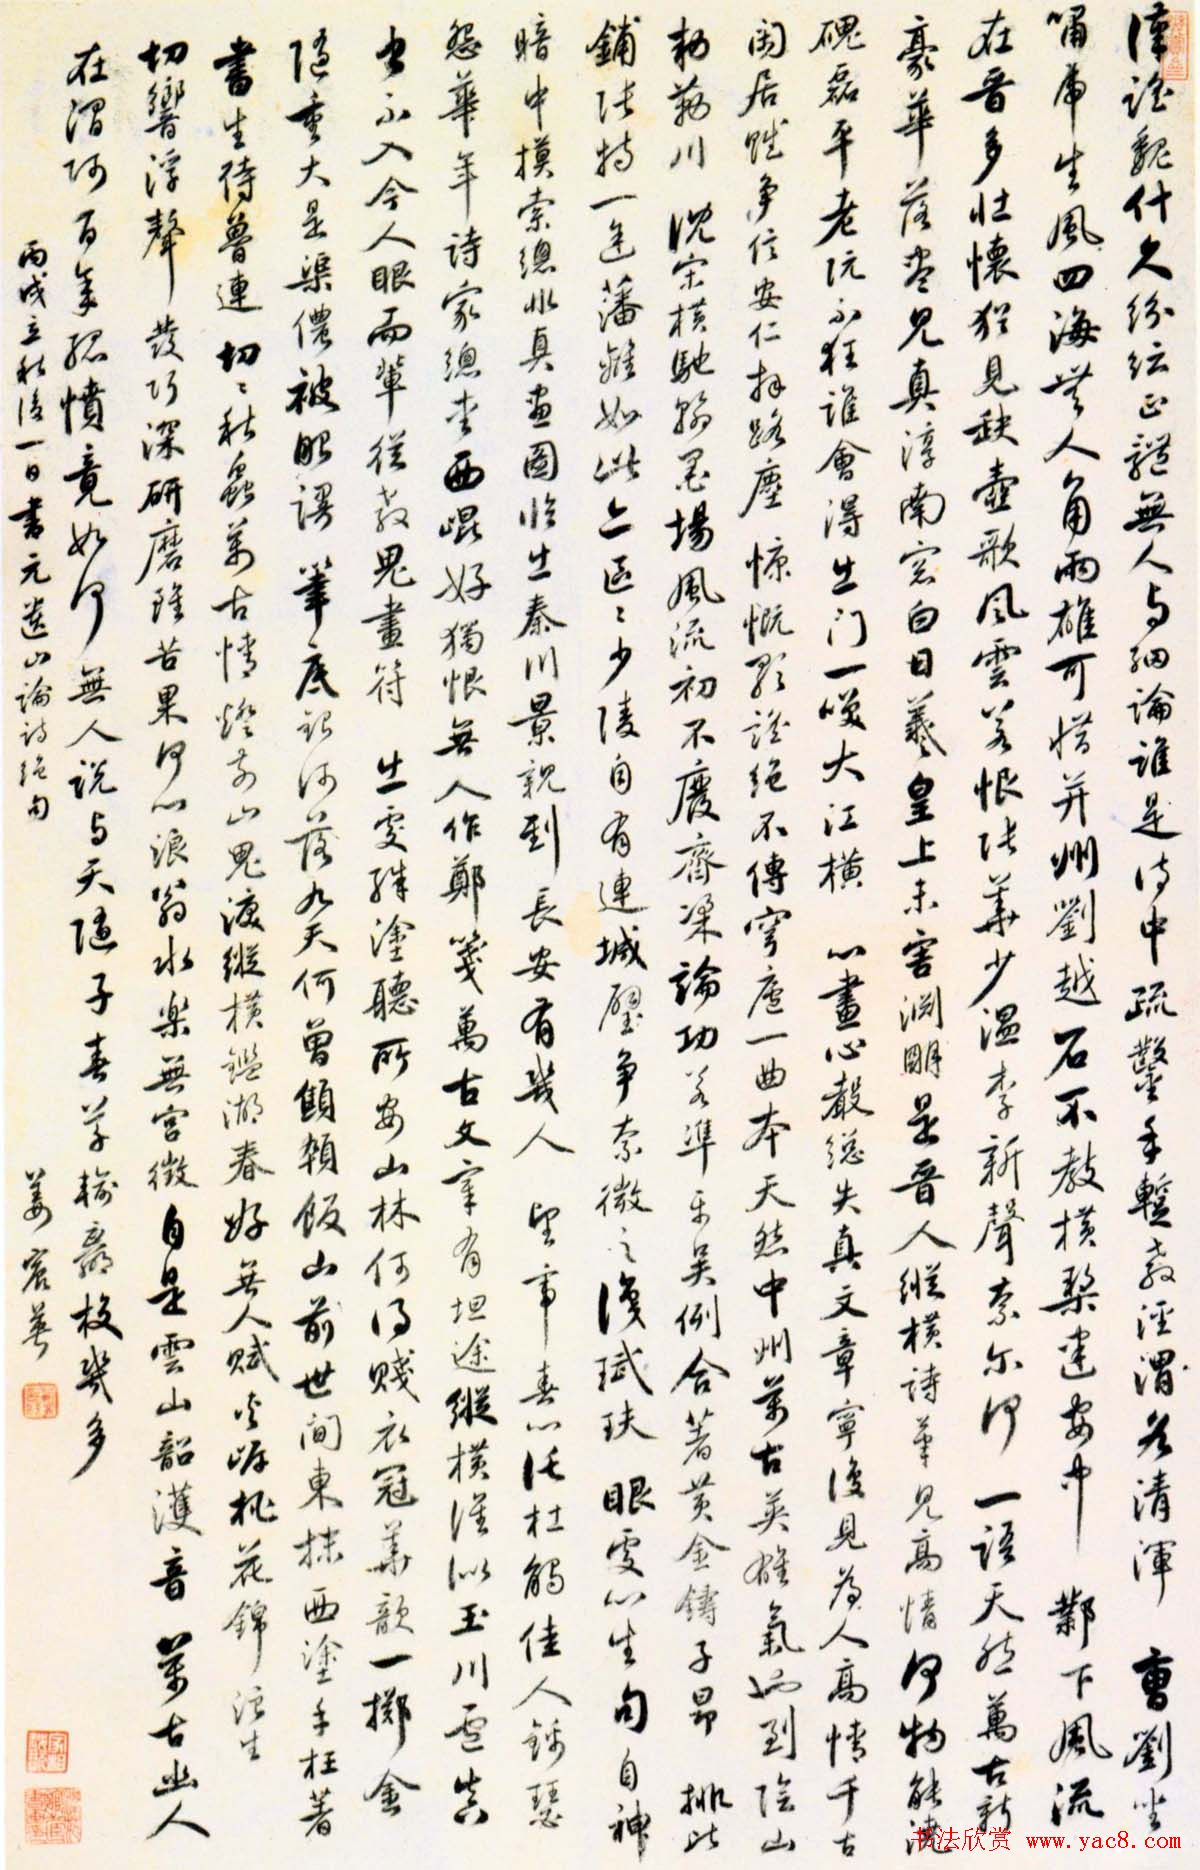 漢謡魏什久紛紜正體無人与細論誰是詩中疏鑿手暫教涇渭各清渾 曹劉坐
嘯虎生風四海無人角兩雄可惜并州劉越石不教橫槊建安中 鄴下風流
在晋多壮懷猶見缺壺歌風雲若恨张華少温李新聲奈尔何 一語天然萬古新
豪華落盡見真淳南窓白日羲皇上未害淵明是晋人縱橫詩筆見高情何物能澆
磈磊平老阮不狂誰會得出门一笑大江橫 心畫心聲總失真文章寧復見為人高情千古
闲居賦争信安仁拜路塵 慷慨歌謡絶不傳穹廬一曲本天然中州萬古英雄氣也到陰山
勅勒川 沈宋橫馳翰墨場風流初不廢齊梁論功若準平吴例合著黄金鑄子昂 排比
鋪张特一途藩籬如此亦區〻少陵自有連城璧争奈微之識珷玞 眼處心生句自神
暗中摸索總非真畫圖临出秦川景親到長安有幾人 望帝春心託杜鵑佳人錦瑟
怨華年詩家總愛西崐好獨恨無人作鄭箋萬古文章有坦途縱橫誰似玉川盧真
书不入今人眼兒輩從教鬼畫符 出處殊塗聽所安山林何得賤衣冠華歆一擲金
隨重大是渠儂被眼謾 筆底銀河落九天何曾顦顇飯山前世間東抹西塗手枉著
書生待魯連 切〻秋蟲萬古情燈前山鬼淚縱橫鑑湖春好無人賦夹岸桃花錦浪生
切響浮聲發巧深研磨雖苦果何心浪翁水樂無宫徴自是雲山韶濩音 萬古幽人
在澗阿百年孤憤竟如何無人說与天隨子春草輸贏校幾多
丙戌立秋後一日書元遺山論詩絶句
姜宸英
书法欣赏 www.yac8.com